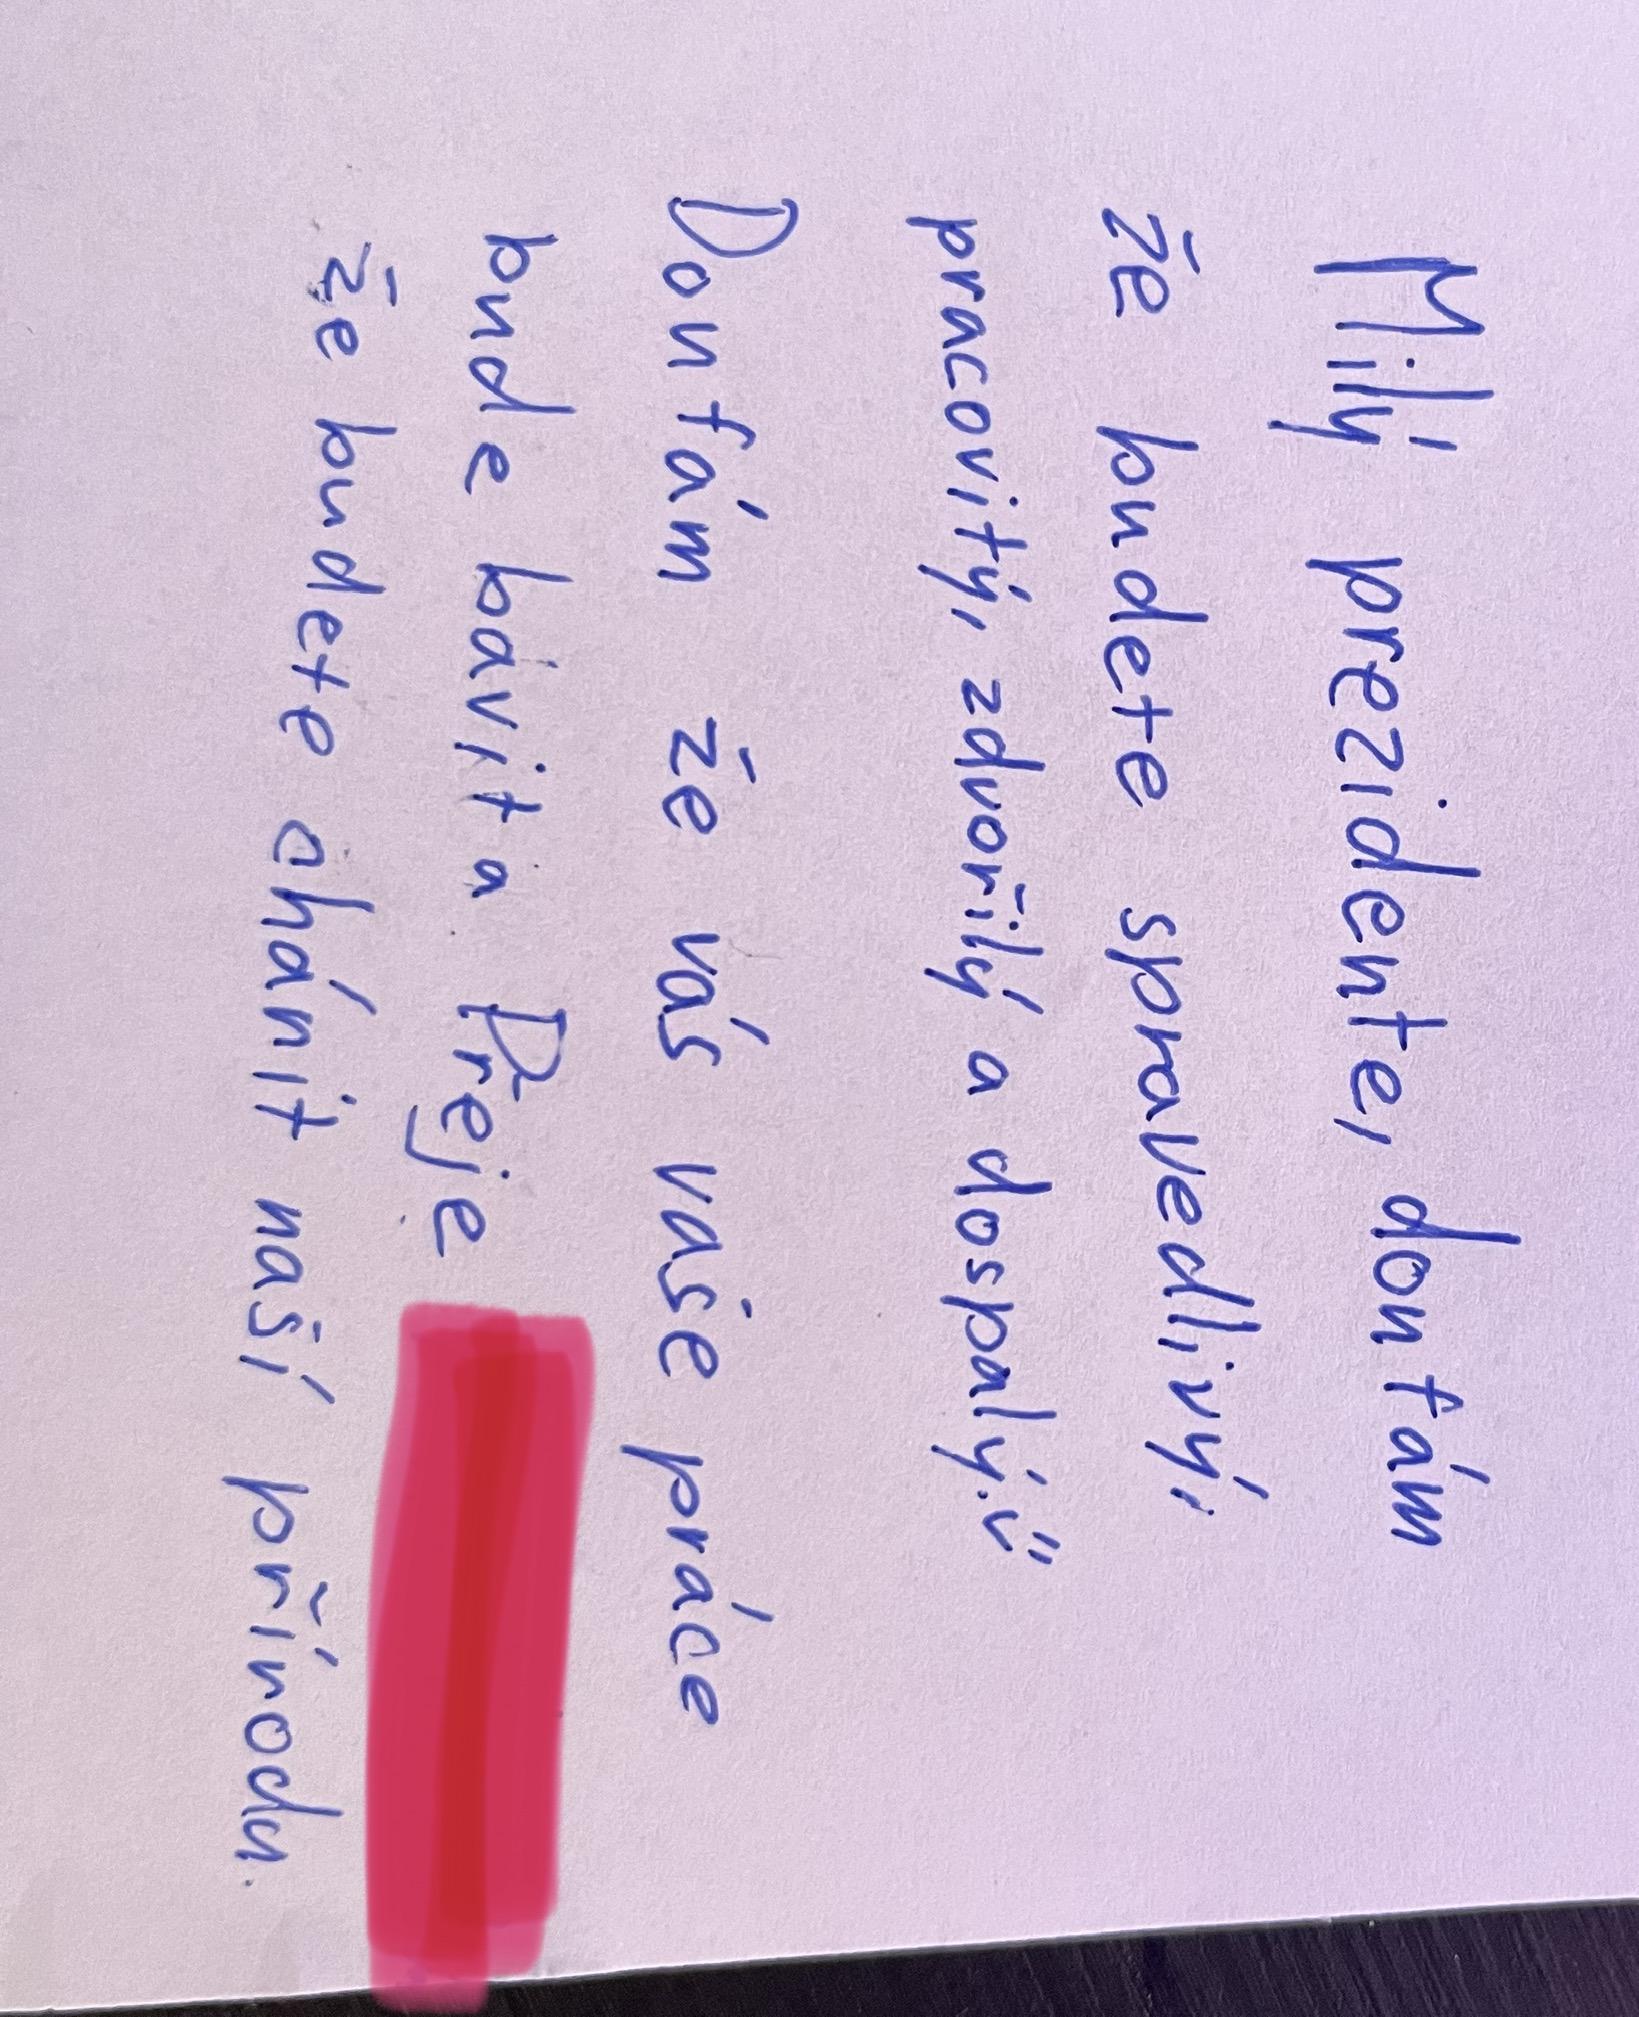 Milý prezidente, doufám
že budete spravedlivý,
pracovitý, zdvořilý a dospalý.ü
Doufám že vás vaše práce
bude bávit a Přeje
že budete ahánit naší přínodu.